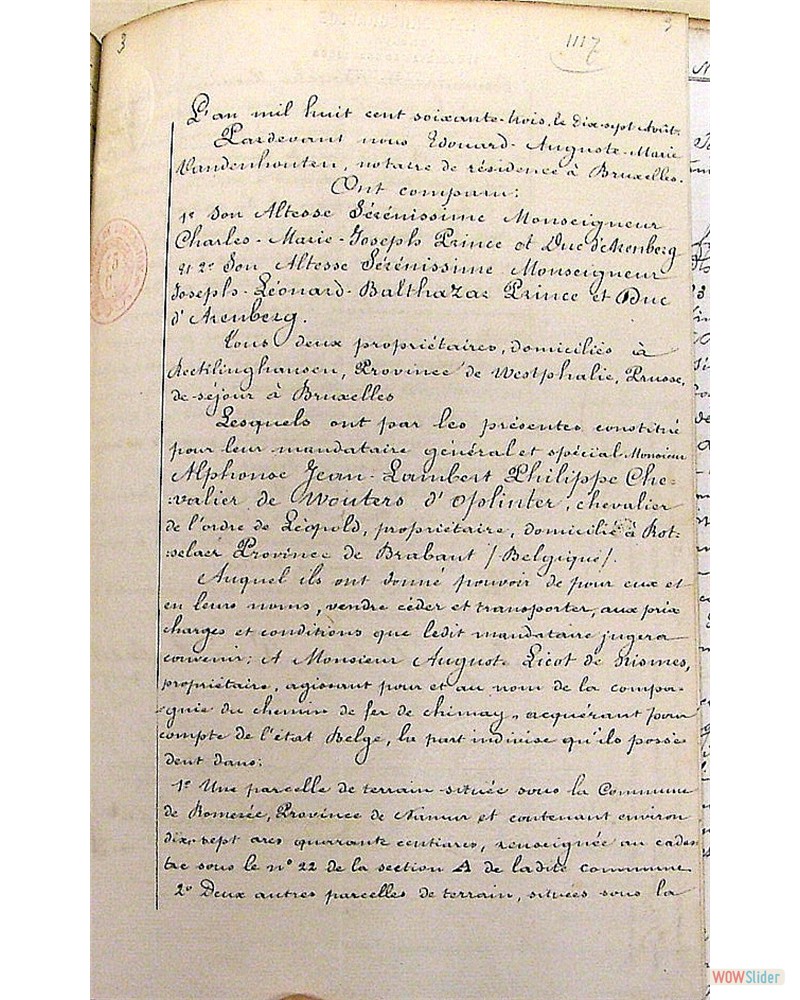 3
1117
L'an mil huit cent soixante-trois, le dix-sept Août.
Pardevant nous Edouard-Auguste-Marie
Vandenhouten, notaire de résidence à Bruxelles.
Ont comparu:
1º Son Altesse Sérénissime Monseigneur
Charles-Marie-Joseph Prince et Duc d'Arenberg
et 2º Son Altesse Sérénissime Monseigneur
Joseph-Léonard-Balthazar Prince et Duc
d'Arenberg.
Tous deux propriétaires, domiciliés à
Recklinghausen, Province de Westphalie, Prusse,
de séjour à Bruxelles
Lesquels ont par les présentes constitué
pour leur mandataire général et spécial Monsieur
Alphonse Jean-Lambert Philippe Che=
=valier de Wouters d'Oplinter, chevalier
de l'ordre de Léopold, propriétaire, domicilié à Rot=
=selaer Province de Brabant /Belgique/.
Auquel ils ont donné pouvoir de pour eux et
en leurs noms, vendre céder et transporter, aux prix
charges et conditions que ledit mandataire jugera
convenir; A Monsieur Auguste Licot de Nismes,
propriétaire, agissant pour et au nom de la compa-
gnie du chemin de fer de chimay, acquérant pour
compte de l'état Belge, la part indivise qu'ils possè-
dent dans:
1º Une parcelle de terrain située sous la Commune
de Romerée, Province de Namur et contenant environ
dix-sept ares quarante centiares, renseignée au cadas
tre sous le nº 22 de la section A de ladite commune
2º Deux autres parcelles de terrain, situées sous la
WOWSlider